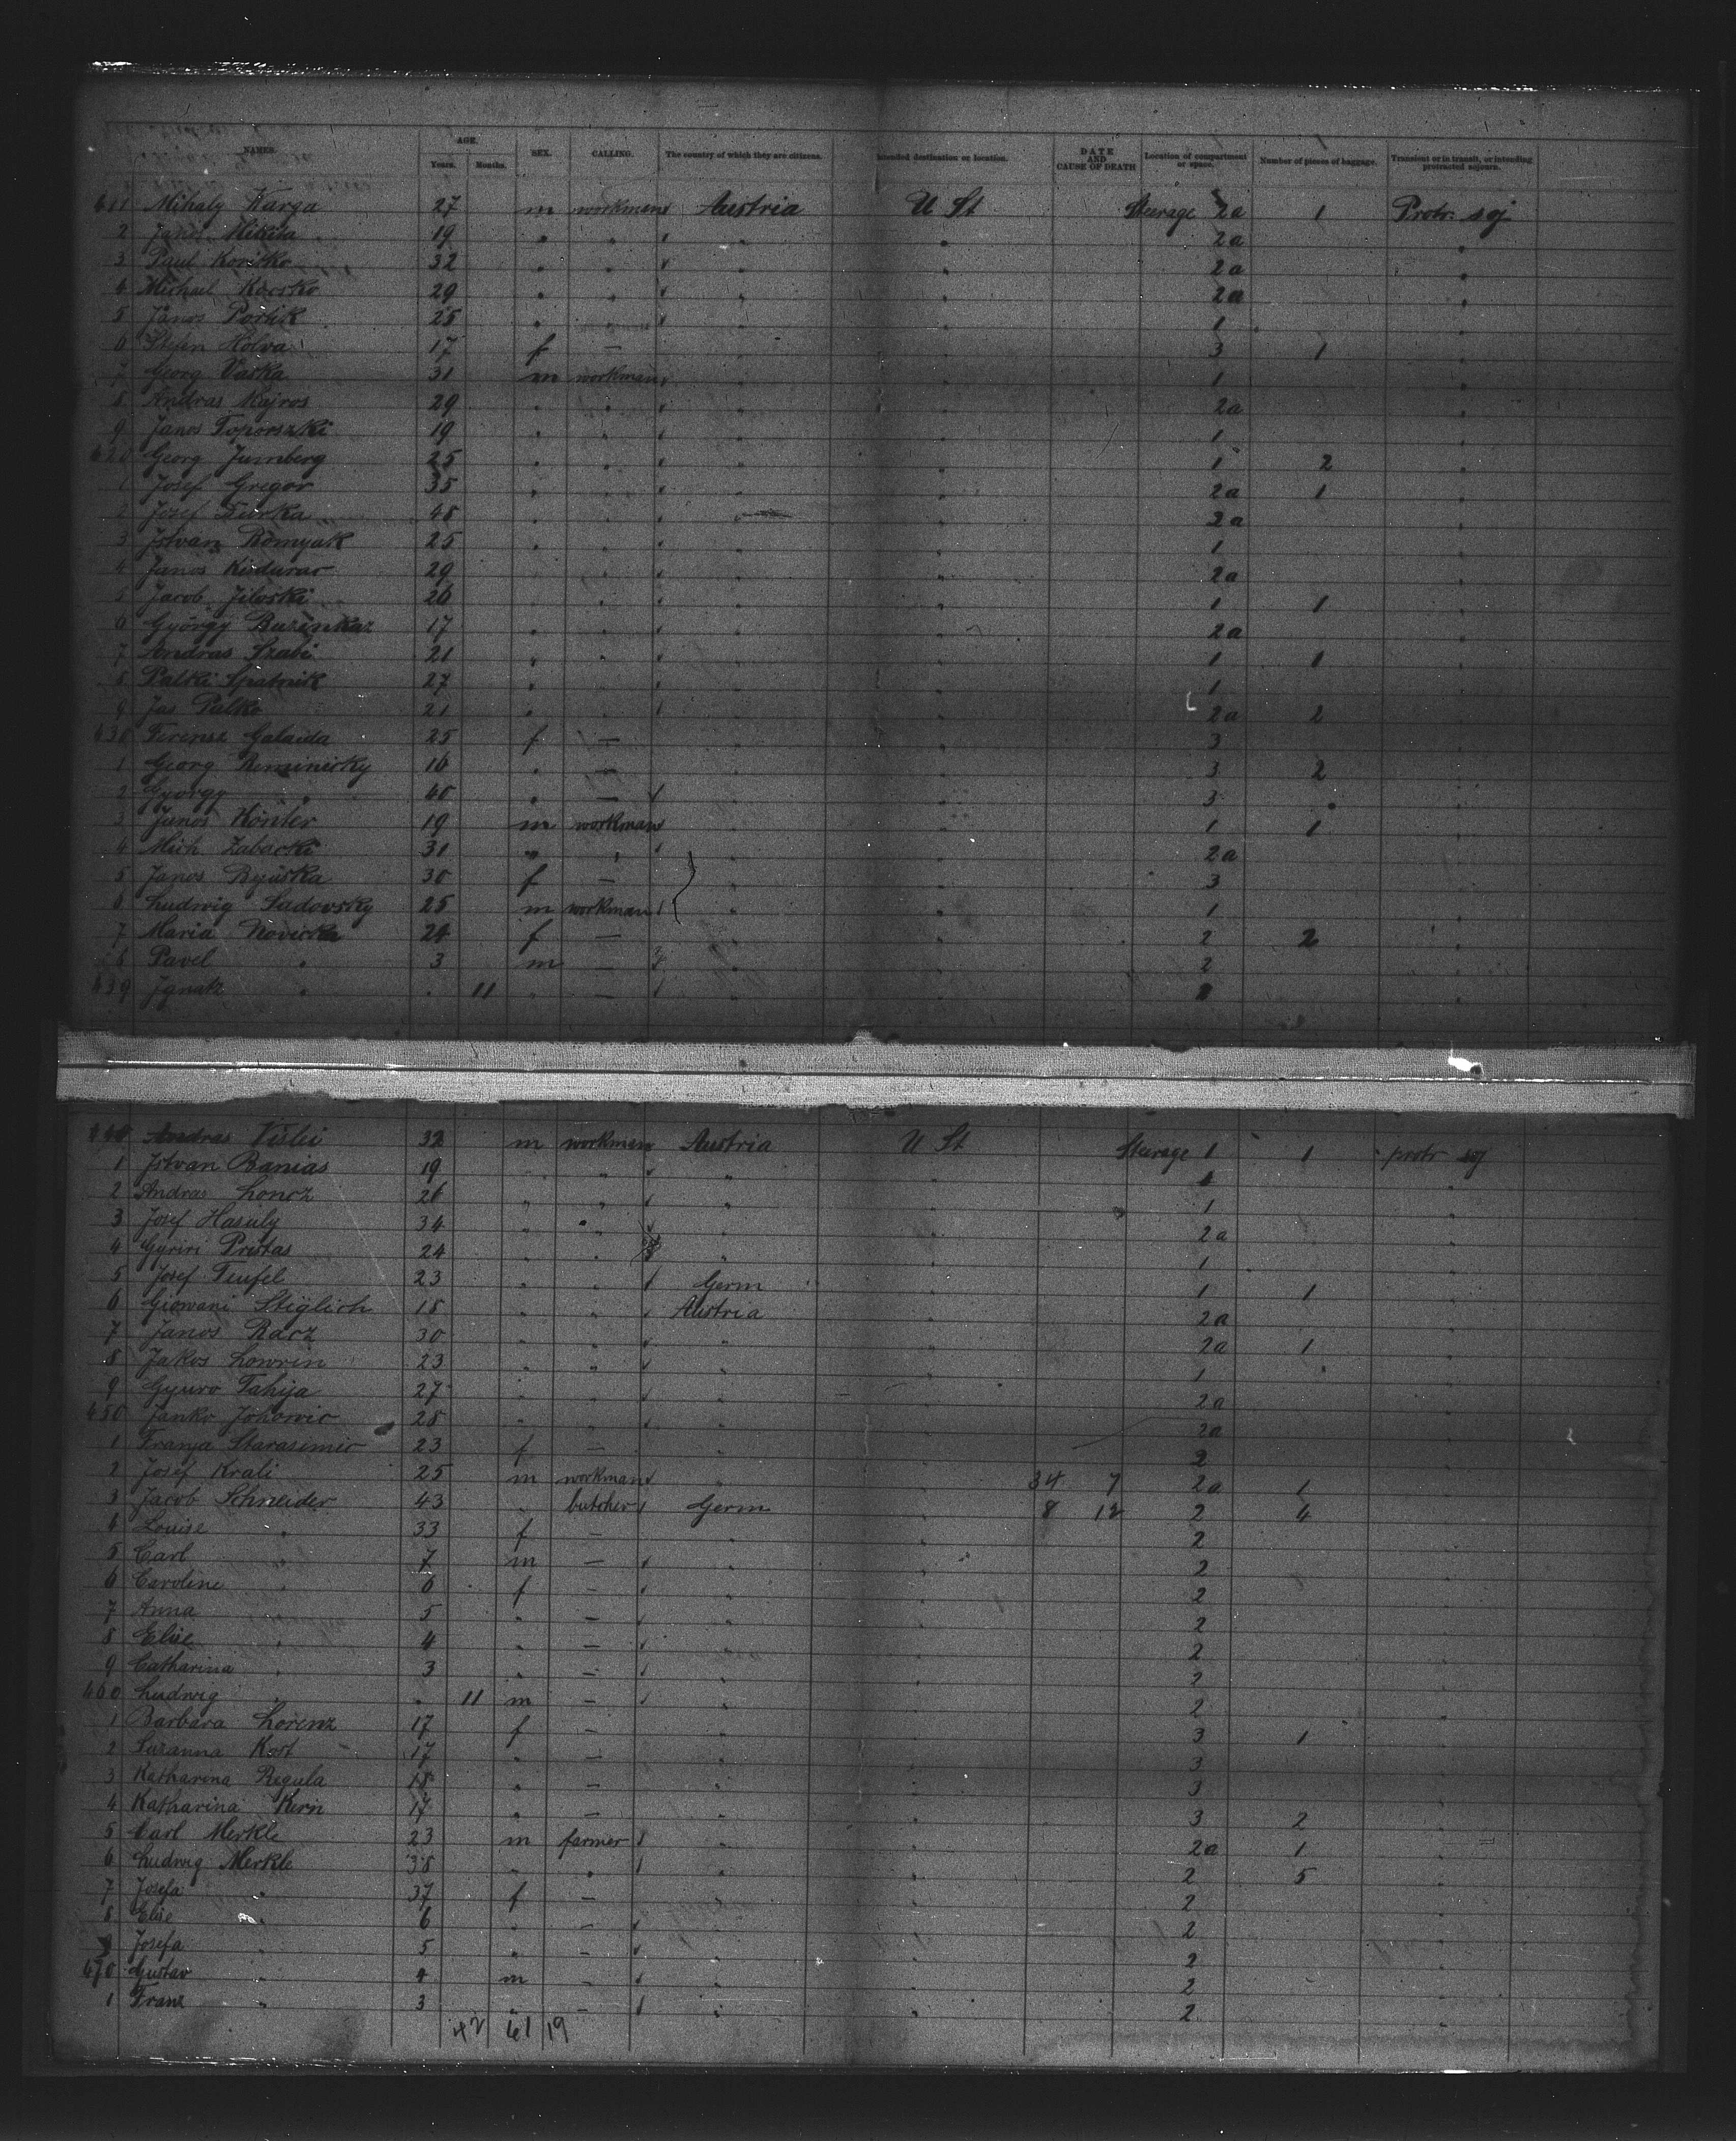 NAMES. AGE. Years. Months. SEX. CALLING. The country of which they are citizens. Intended destination or location. DATE AND CAUSE OF DEATH Location of compartment or space. Number of pieces of baggage. Transient or in transit, or intending protracted sojourn.
411 Mihaly Karga 27 m workman Austria U St Steerage 2a 1 Protr. soj
2 Janos Mikita 19 " " " " 2a "
3 Paul Koritko 32 " " " " 2a "
4 Michael Kocsko 29 " " " " 2a "
5 Janos Portik 25 " " " 1 "
6 Holva 17 f — " " 3 1 "
7 Georg Vaska 31 m workman " " 1 "
8 Andras Majros 29 " " " " 2a "
9 Janos Toporszki 19 " " " " 1 "
420 Georg Jumberg 25 " " " " 1 2 "
1 Josef Gregor 35 " " " " 2a 1 "
2 Jozef 48 " " " " 2a "
3 Istvan Romyak 25 " " " " 1 "
4 Janos 29 " " " " 2a "
5 Jacob Jiloski 26 " " " " 1 1 "
6 György Buzinkaz 17 " " " " 2a "
7 Andras Szabi 21 " " " " 1 1 "
8 Palki Spatnik 27 " " " " 1 "
9 Jas Palko 21 " " " 2a 2 "
430 Ferensz Galaida 25 f — " " 3 "
1 Georg Reminicsky 16 " — " " 3 2 "
2 György " 40 " — " " 3 "
3 Janos 19 m workman " " 1 1 "
4 Mich. Zabacki 31 " " " " 2a "
5 Janos 30 f — " " 3 "
6 Ludwig Sadovsky 25 m workman " " 1 "
7 Maria Novicka 24 f — " " 2 2 "
8 Pavel " 3 m — " " 2 "
439 Ignatz " " 11 " — " " "
440 Andras Vislei 32 m workman Austria U St Steerage 1 1 protr soj
1 Istvan Banias 19 " " " " 1 "
2 Andras Loncz 26 " " " " 1 "
3 Josef Hasuly 34 " " " " 2a "
4 Pristas 24 " " " " 1 "
5 Josef Teufel 23 " " Germ " 1 1 "
6 Giowani Stiglich 18 " " Austria " 2a "
7 Janos Racz 30 " " " " 2a 1 "
8 Jakos Lowrin 23 " " " " 1 "
9 Gyuro Tahija 27 " " " " 2a "
450 Janko Johovic 28 " " " " 2a "
1 Franja Starasinic 23 f — " " 2 "
2 Josef Krali 25 m workman " " 34 7 2a 1 "
3 Jacob Schneider 43 " butcher Germ " 8 12 2 4 "
4 Louise " 33 f — " " 2 "
5 Carl " 7 m — " " 2 "
6 Caroline " 6 f — " " 2 "
7 Anna " 5 " — " " 2 "
8 Elise " 4 " — " " 2 "
9 Catharina " 3 " — " " 2 "
460 Ludwig " " 11 m — " " 2 "
1 Barbara Lorenz 17 f — " " 3 1 "
2 Suzanna Kost 17 " — " " 3 "
3 Katharina Regula 18 " — " " 3 "
4 Katharina Kern 17 " — " " 3 2 "
5 Carl Merkle 23 m farmer " " 2a 1 "
6 Ludwig Merkle 38 " " " " 2 5 "
7 Josefa " 37 f — " " 2 "
8 Elise " 6 " — " " 2 "
9 Josefa " 5 " — " " 2 "
470 Gustav " 4 m — " " 2 "
1 Franz " 3 " — " " 2 "
42 61 19